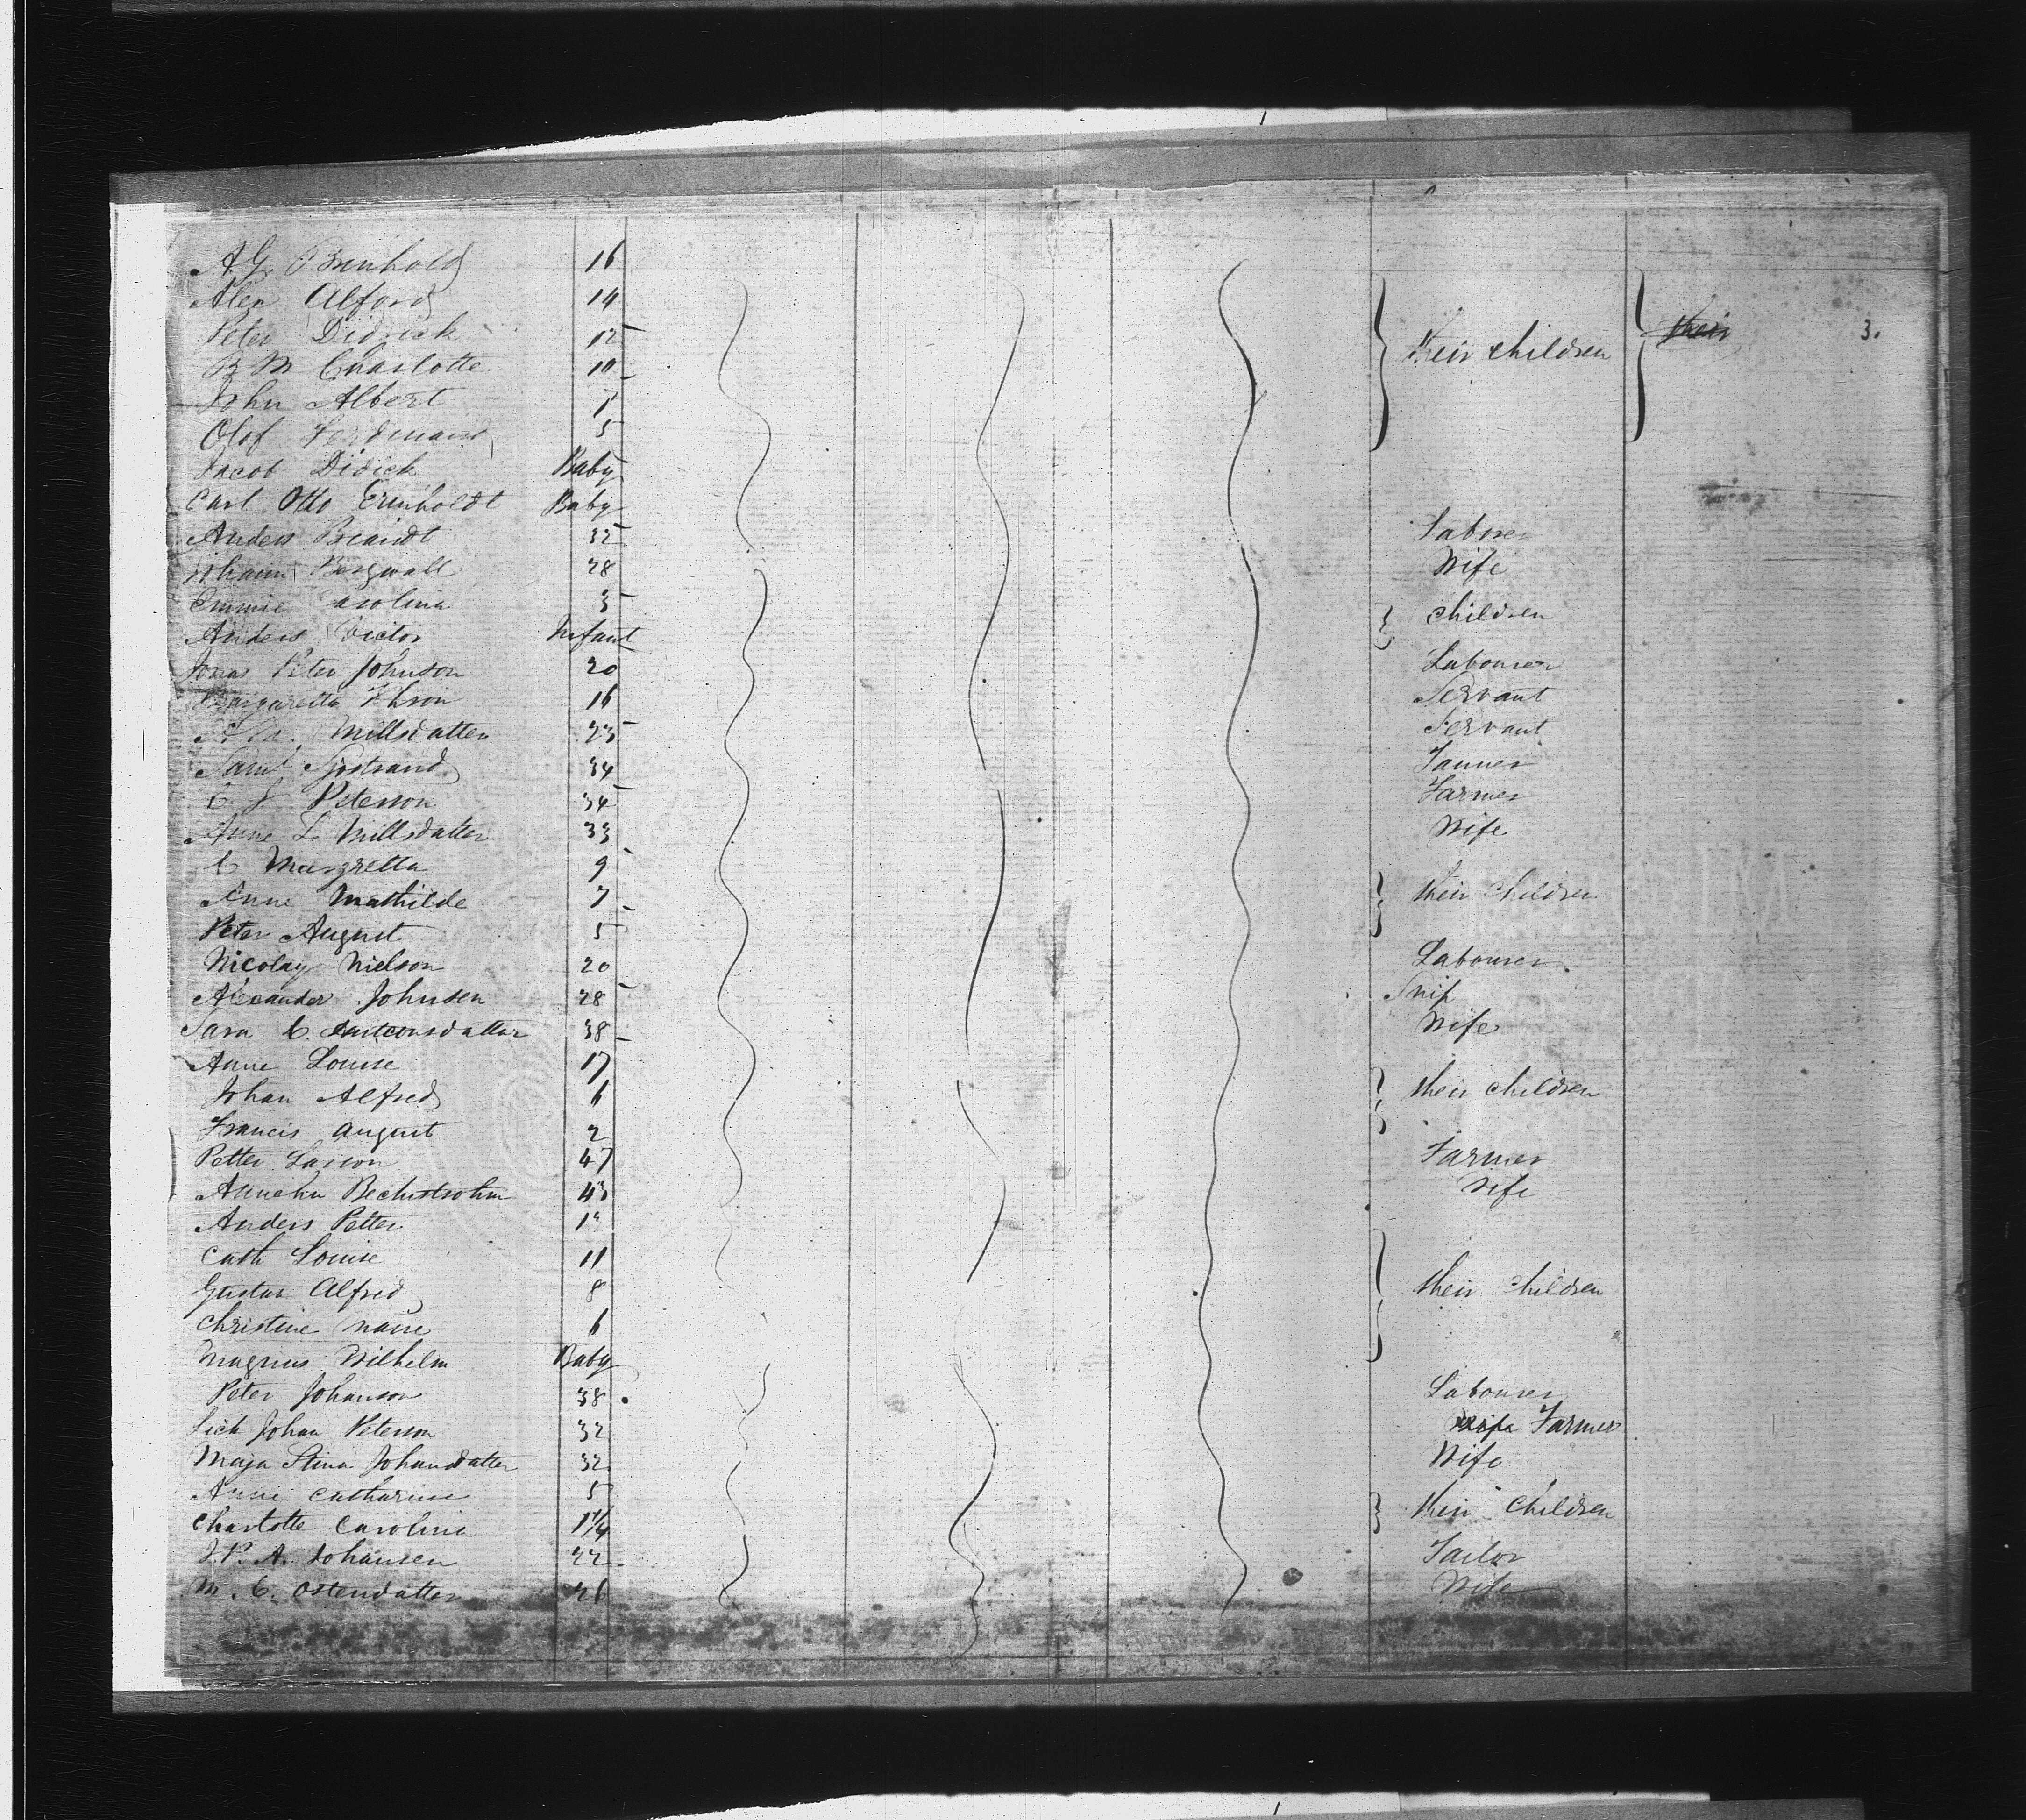 A.G. Brenhold 16
Alex Alford 14
Peter Didrick 12 their children their 3.
B M Charlotte 10
John Albert 7
Olof Ferdinand 5
Jacob Didick Baby
Carl Otto Erenholdt Baby
Anders Brandt 32 Laborer
Bergwall 28 Wife
Emmie Carolina 3 children
Anders Victor Infant
Jonas Peter Johnson 20 Labourer
Margaretta 16 Servant
Nillsdatter 23 Servant
Saml Sjostrand 34 Tanner
C J Peterson 34 Farmer
Anne L Nillsdatter 33 Wife
C Margretta 9
Anne Mathilde 7 their children
Peter August 5
Nicolay Nielson 20 Labourer
Alexander Johnsen 28
Sara C. 38 Wife
Anne Louise 17
Johan Alfred 6 their children
Francis August 2
Petter Larson 47 Farmer
43 Wife
Anders Petter
Cath Louise 11
Gustav Alfred 8 their children
Christine 6
Magnus Wilhelm Baby
Peter Johanson 38 Labourer
Johan Peterson 32 Wife Farmer
Maja Stina Johansdatter 32 Wife
Anne Catharine 5
Charlotte Caroline 1 1/4 their children
J.P. A. Johansen 22 Tailor
M. C. Ostendatter 26 Wife